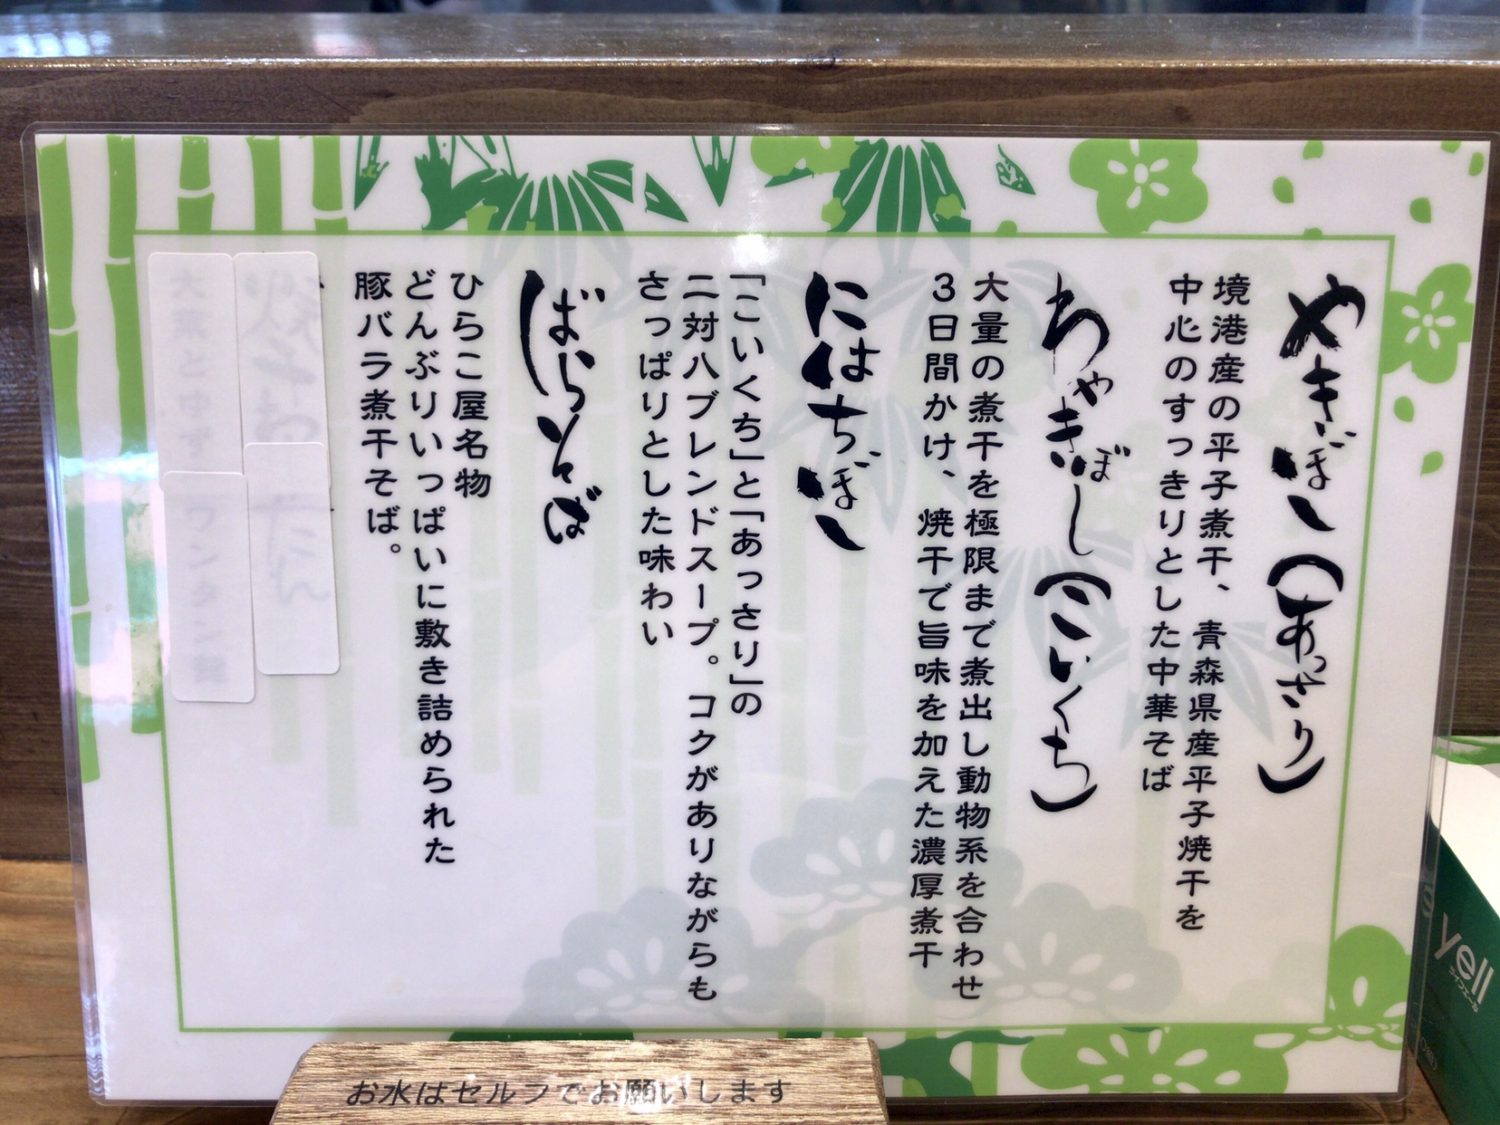 やきぼし(あっさり)
境港産の平子煮干、青森県産平子焼干を
中心のすっきりとした中華そば
わやきぼし(こいくち)
大量の煮干を極限まで煮出し動物系を合わせ
3日間かけ、焼干で旨味を加えた濃厚煮干
にはちぼし
「こいくち」と「あっさり」の
二対八ブレンドスープ。コクがありながらも
さっぱりとした味わい
ばらそば
ひらこ屋名物
どんぶりいっぱいに敷き詰められた
豚バラ煮干そば。
お水はセルフでお願いします
yell